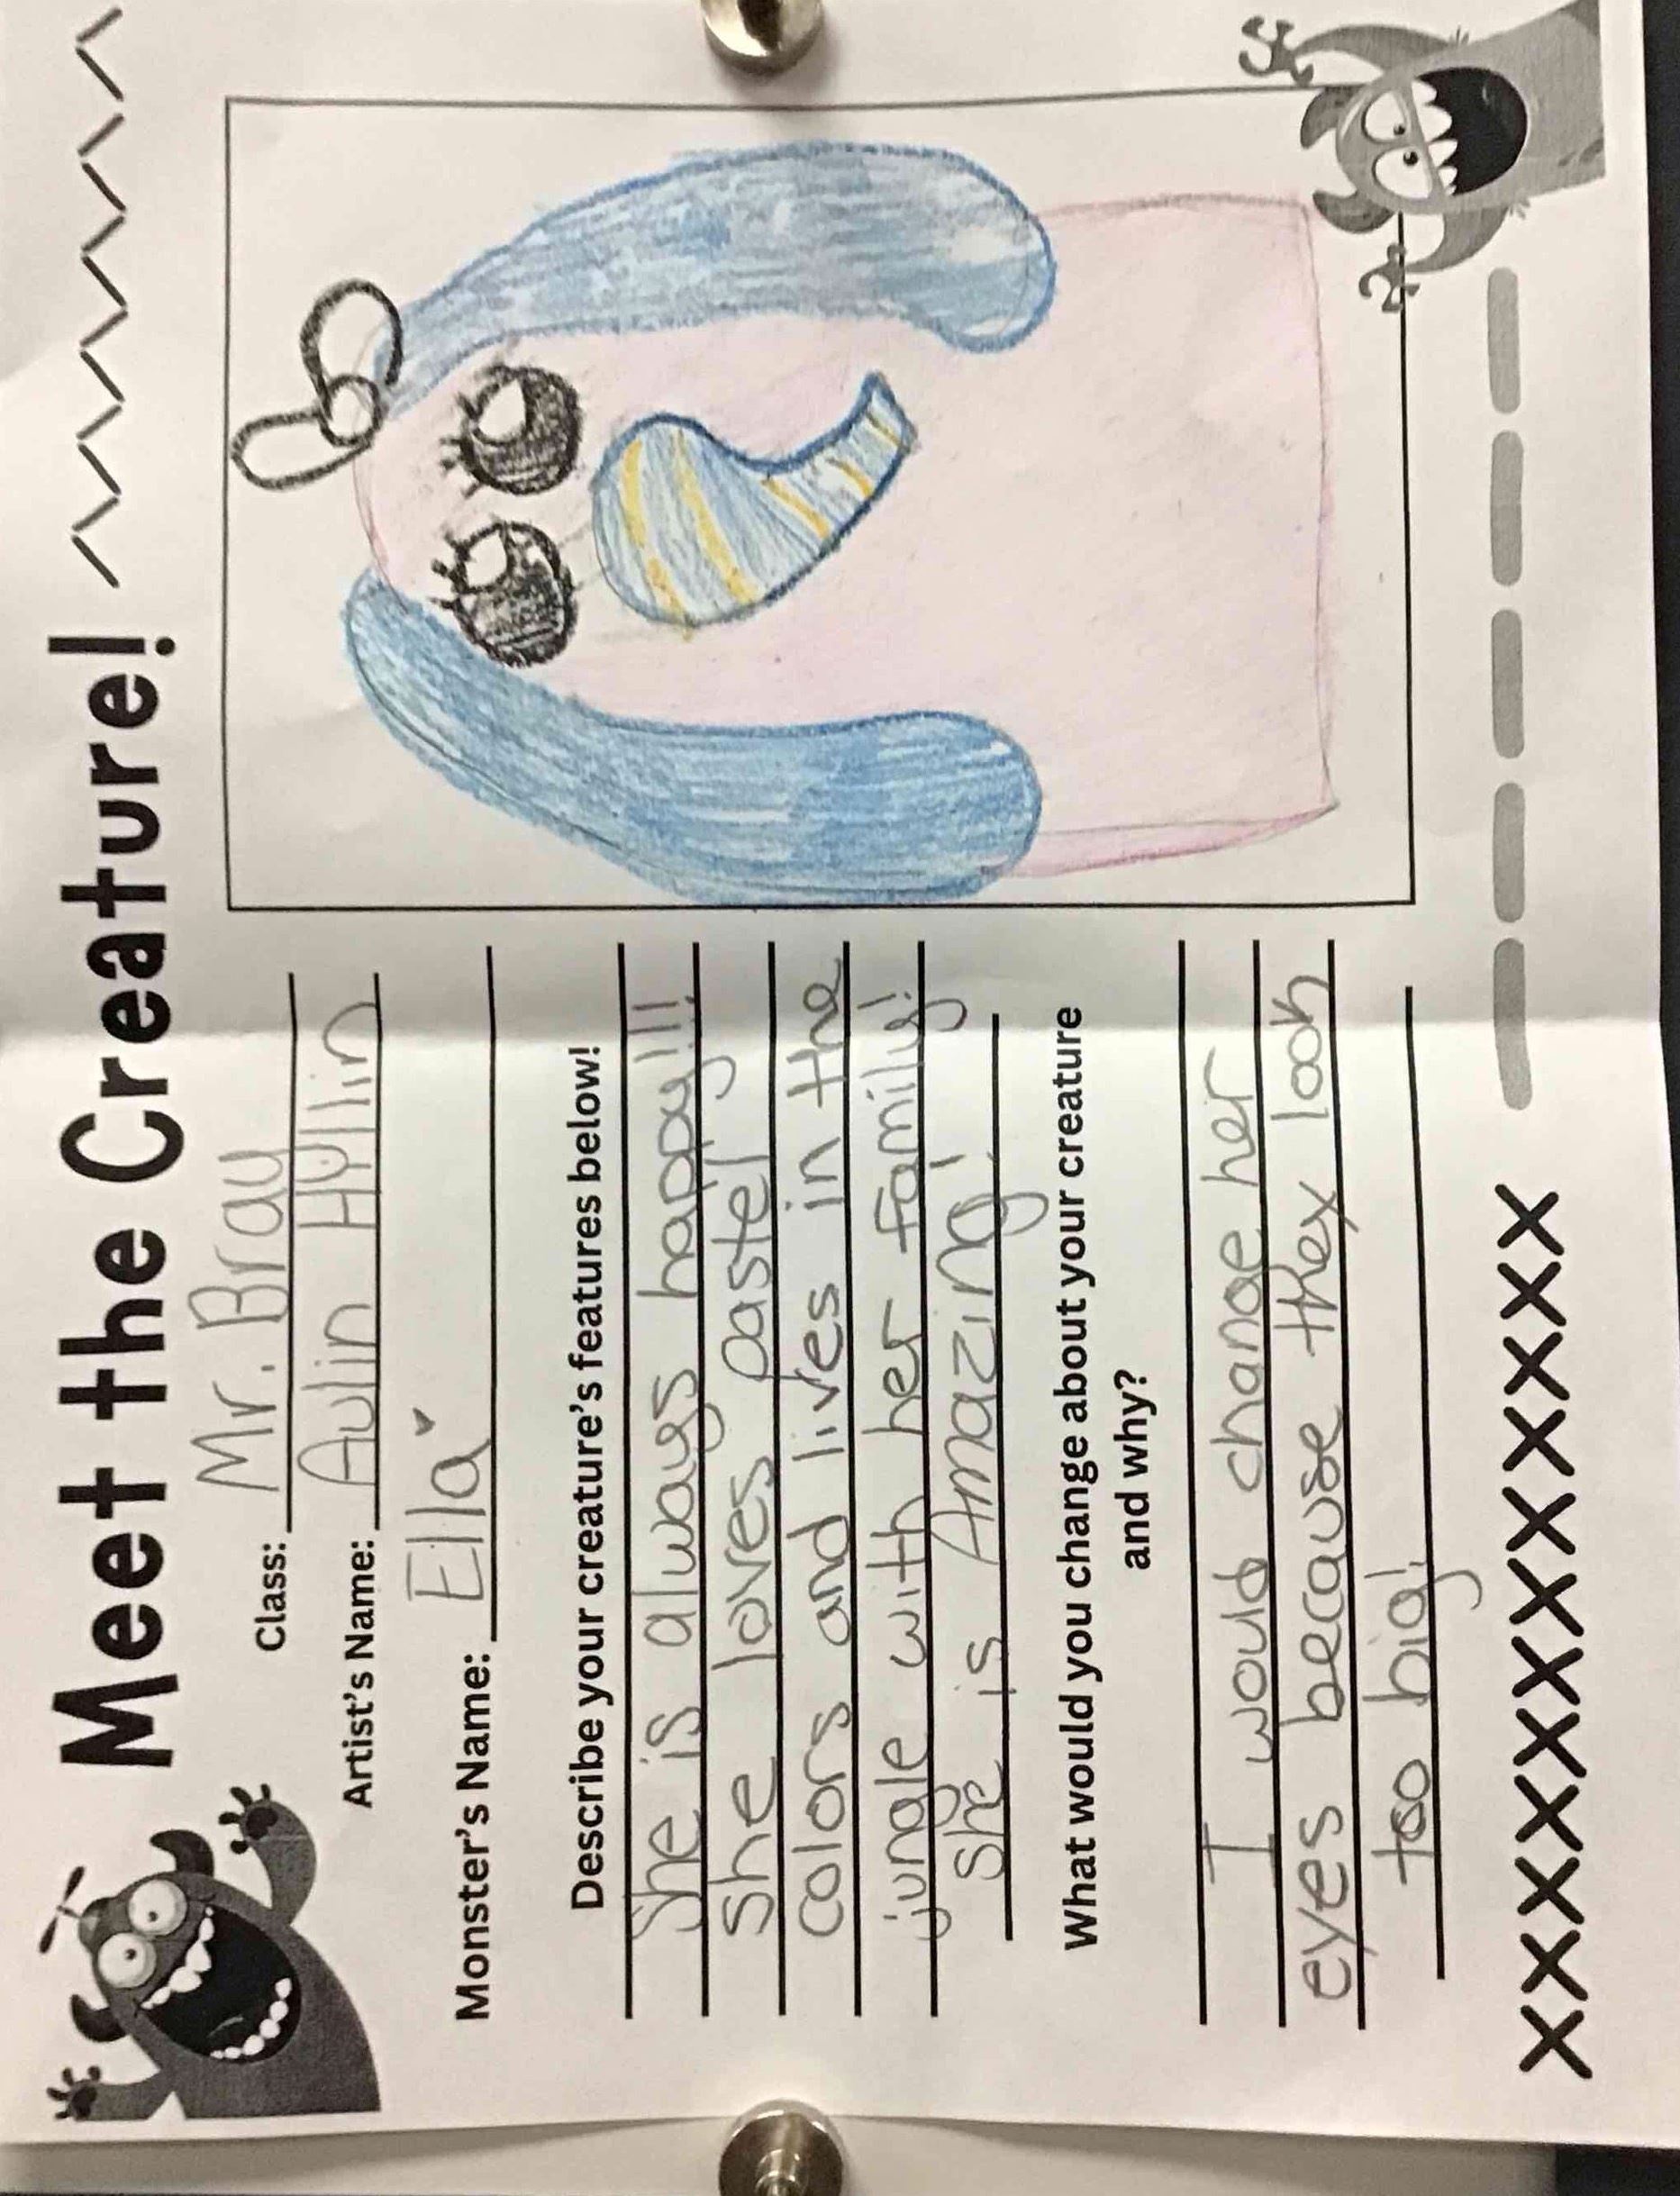 Meet the Creature!
Class: Mr. Bray
Artist's Name: Aulin Hyllin
Monster's Name: Ella
Describe your creature's features below!
She is always happy!!!
She loves pastel
colors and lives in the
jungle with her family!
She is Amazing!
What would you change about your creature
and why?
I would change her
eyes because they look
too big!